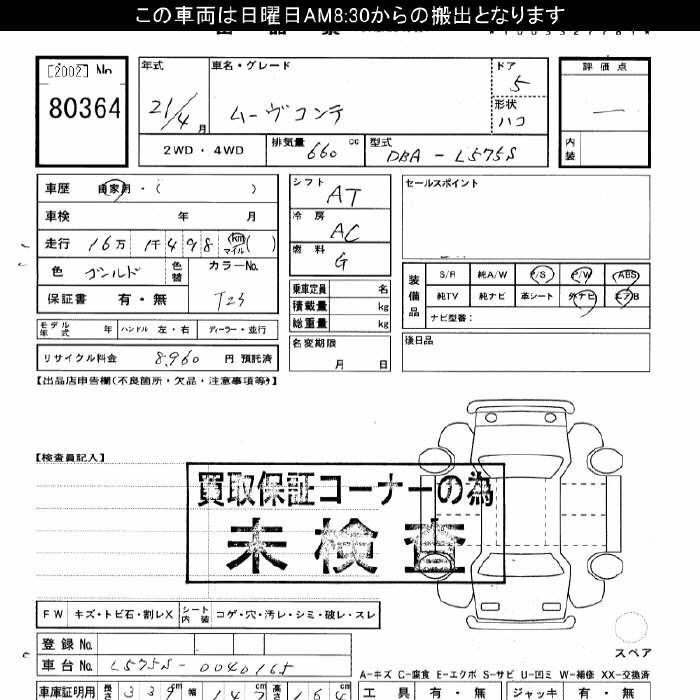 この車両は日曜日AM8:30からの搬出となります
[2002] No
80364
年式
21/4 月
車名・グレード
ムーヴコンテ
ドア
5
形状
ハコ
評価点
―
内装
2WD・4WD
排気量 660 cc
型式 DBA-L575S
車歴 自家用・( )
車検 年 月
走行 16万 1千498 km マイル ( )
色 ゴールド
色替
カラーNo.
T23
保証書 有・無
モデル年式 年
ハンドル 左・右
ディーラー・並行
リサイクル料金 8,960 円 預託済
シフト AT
冷房 AC
燃料 G
乗車定員 名
積載量 kg
総重量 kg
名変期限
月 日
セールスポイント
装備品
S/R 純A/W P/S P/W ABS
純TV 純ナビ 革シート 外ナビ エアB
ナビ型番:
後日品
【出品店申告欄(不良箇所・欠品・注意事項等)】
【検査員記入】
買取保証コーナーの為
未検査
FW キズ・トビ石・割レX
シート内装 コゲ・穴・汚レ・シミ・破レ・スレ
登録No.
車台No. L575S-0040165
スペア
A-キズ C-腐食 E-エクボ S-サビ U-凹ミ W-補修 XX-交換済
車庫証明用 長さ 339cm 幅 147 高さ 164
工具 有・無 ジャッキ 有・無